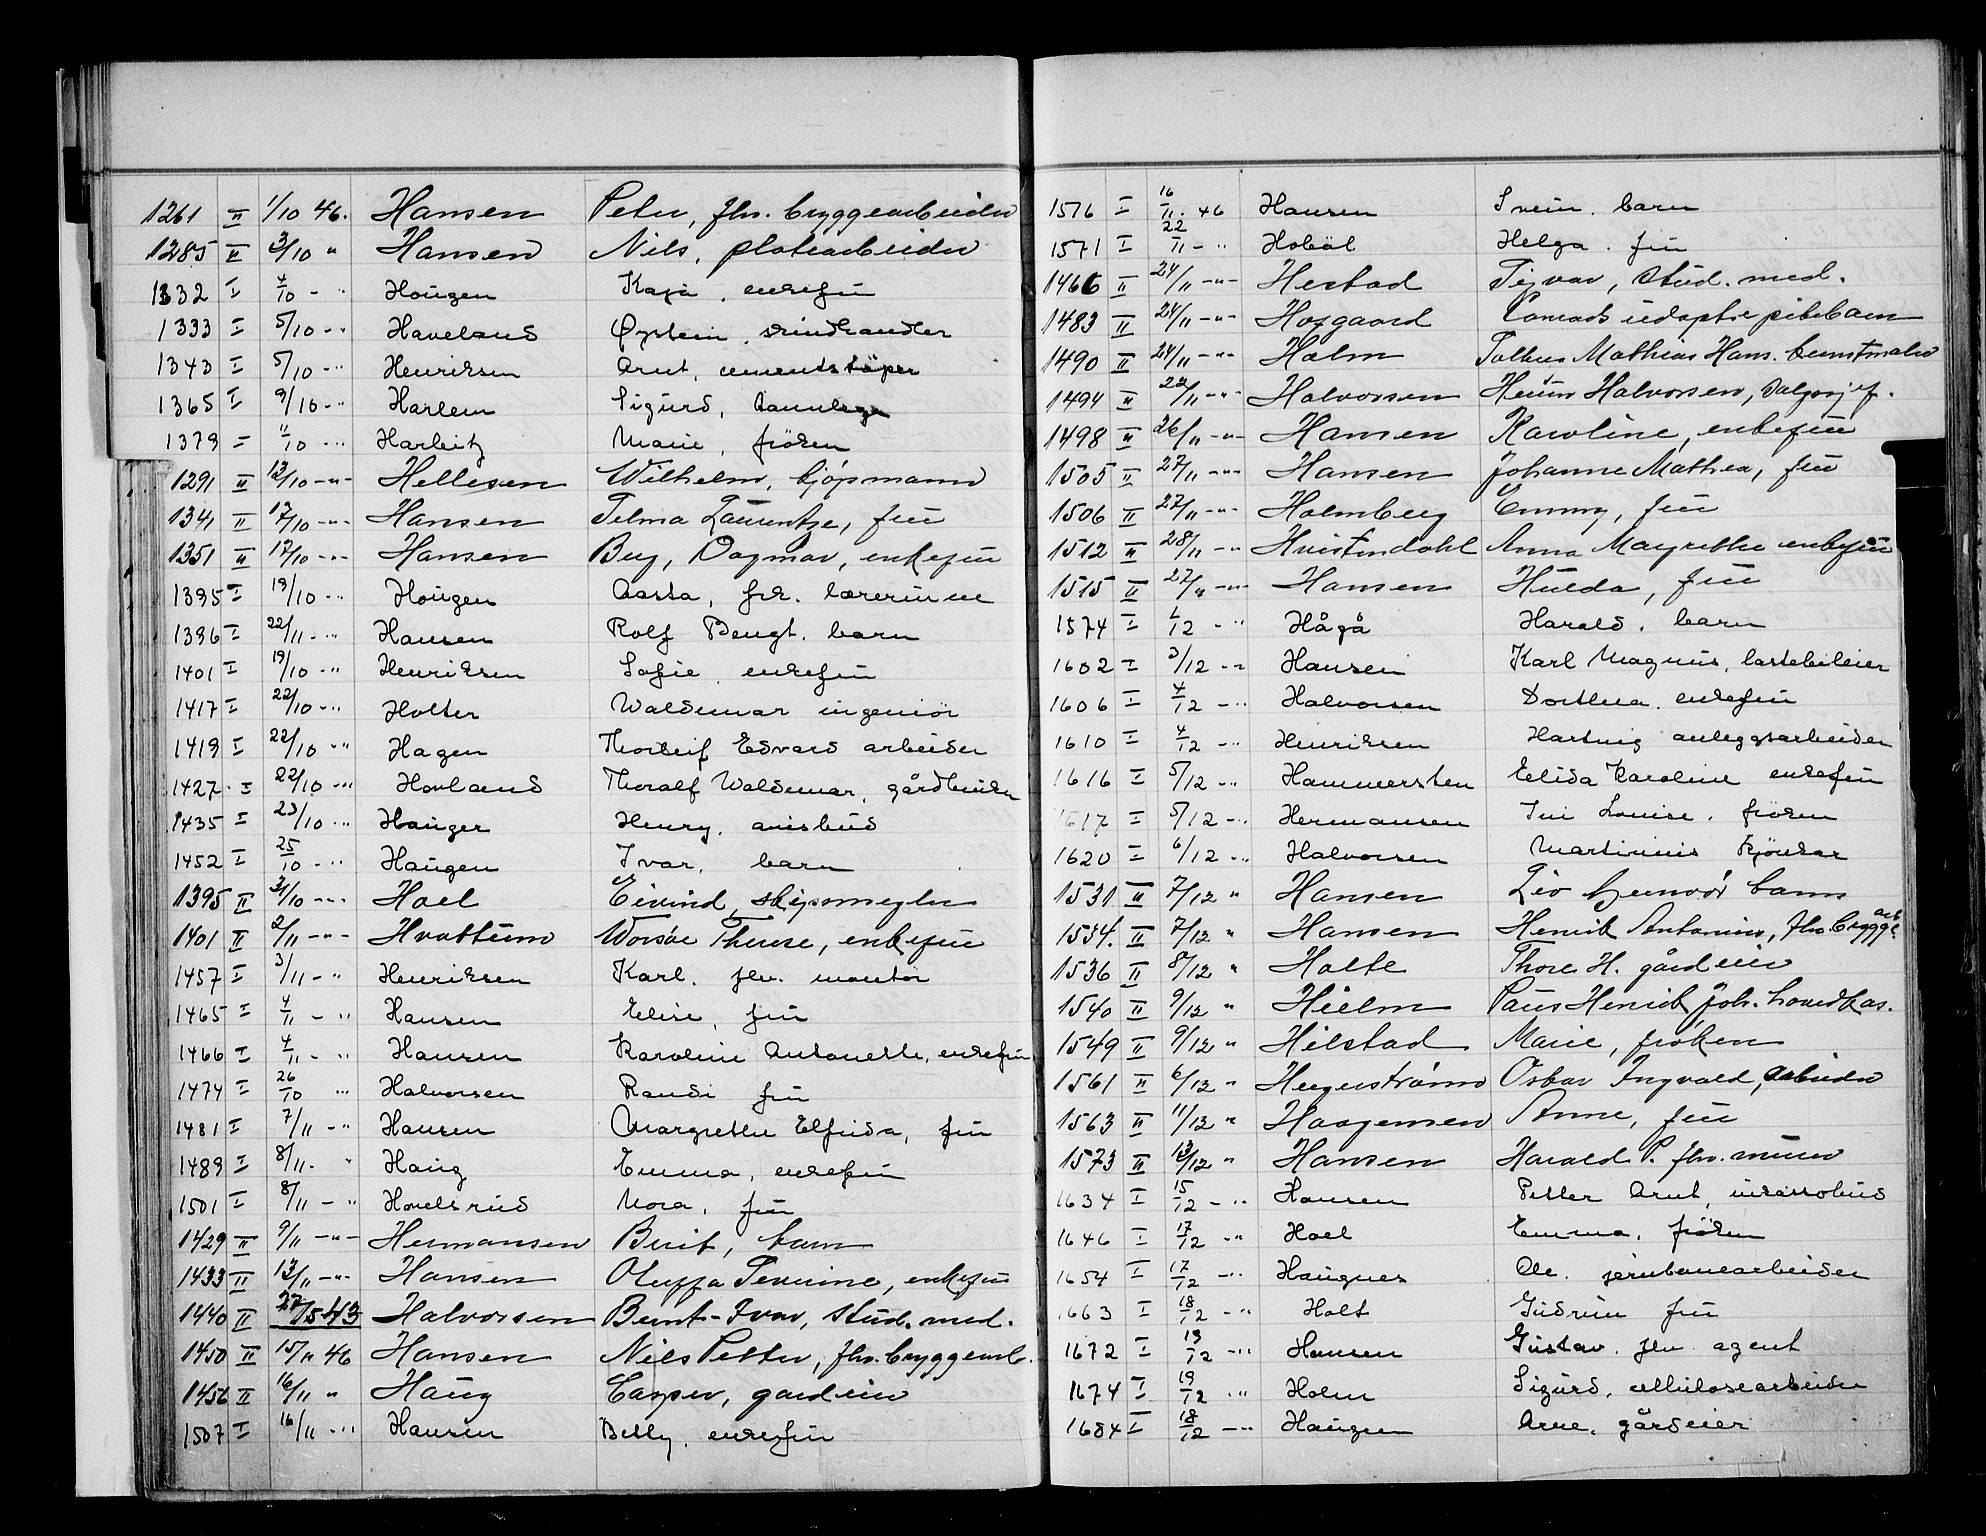 1261 II 1/10 46. Hansen Peter, fhv. bryggearbeider
1285 II 3/10 " Hansen Nils, platearbeider
1332 I 4/10 - " Haugen Kaja, enkefru
1333 I 5/10 - " Haveland Øystein, vindhandler
1343 I 5/10 - " Henriksen Arnt, cementstöper
1365 I 9/10 - " Harlem Sigurd, tannlege
1379 I 11/10 - " Harbitz Marie, fröken
1291 II 13/10 - " - Hellesen Wilhelm, kjøpmann
1341 II 17/10 - " - Hansen Telma Laurentze, fru
1351 II 17/10 - " - Hansen Bug, Dagmar, enkefru
1395 I 19/10 - " Haugen Aasta, frk. lærerinne
1396 I 22/11 - " Hansen Rolf Bengt, barn
1401 I 19/10 - " Henriksen Sofie, enkefru
1417 I 22/10 - " Holter Waldemar ingeniör
1419 I 22/10 - " Hagen Thorleif Edvard arbeider
1427 I 22/10 - " Hovland Thoralf Waldemar, gårdbruker
1435 I 23/10 - " Hauger Henry, avisbud
1452 I 25/10 - " Haugen Ivar, barn
1395 II 31/10 - " - Hoel Eivind, skipsmegler
1401 II 2/11 - " - Hvattum Worsøe Therese, enkefru
1457 I 3/11 - " Henriksen Karl, fhv. montör
1465 I 4/11 - " Hansen Elise, fru
1466 I 4/11 - " Hansen Karoline Antonette, enkefru
1474 I 26/10 " Halvorsen Randi fru
1481 I 7/11 - " Hansen Margrethe Elfrida, fru
1489 I 8/11 - " Haug Emma, enkefru
1501 I 8/11 - " Hovelsrud Nora, fru
1429 II 9/11 - " - Hermansen Berit, barn
1433 II 13/11 - " - Hansen Oluffa Severine, enkefru
1440 II 27/5 43 Halvorsen Bernt-Ivar, stud. med.
1450 II 15/11 46 Hansen Nils Petter, fhv. bryggearb.
1456 II 16/11 " Haug Casper, gardeier
1507 I 16/11 - " Hansen Betty, enkefru
1516 I 16/11. 46 Hansen Svein, barn
1571 I 22/11 - " Hobøl Helga, fru
1466 II 24/11 - " - Hestad Sigvar, stud. med.
1483 II 24/11 - " - Hosgaard Conrads udøpte pikebarn
1490 II 24/11 - " - Holm Mathias Hans. kunstmaler
1494 II 22/11 - " - Halvorsen Halvorsen, Salgssjef.
1498 II 26/11 - " - Hansen Karoline, enkefru
1505 II 27/11 - " - Hansen Johanne Mathea, fru
1506 II 27/11 - " - Holmberg Emmy, fru
1512 II 28/11 - " Hvistendahl Anna Margrethe enkefru
1515 II 27/11 - " - Hansen Hulda, fru
1574 I 1/12 - " Hågå Harald, barn
1602 I 3/12 - " Hansen Karl Magnus, lastebileier
1606 I 4/12 - " Halvorsen Dorthea, enkefru
1610 I 4/12 - " Henriksen Hartvig anleggsarbeider
1616 I 5/12 - " Hammersten Elida Karoline enkefru
1617 I 5/12 - " Hermansen Ini Louise, fröken
1620 I 6/12 - " Halvorsen Martinius kjörekar
1531 II 7/12 " Hansen Liv Gunvor barn
1534. II 7/12 " Hansen Henrik Antonius, fhv. brygge. arb
1536 II 8/12 " Halte Thore H. gårdeier
1540 II 9/12 " Hielm Paus Henrik Joh. hovedkas.
1549 II 9/12 " Hilstad Marie, frøken
1561 II 6/12 " Hegerstrøm Oskar Ingvald, arbeider
1563 II 11/12 " Haagensen Anne, fru
1573 II 13/12 " Hansen Harald P. fhv. murer
1634 I 15/12 - " Hansen Petter Arnt, inkassobud
1646 I 17/12 - " Hoel Emma, fröken
1654 I 17/12 - " Haugnes Ole, jernbanearbeider
1663 I 18/12 - " Holt Gudrun fru
1672 I 19/12 - " Hansen Gustav, fhv. agent
1674 I 19/12 - " Holm Sigurd, cellulosearbeider
1684 I 18/12 - " Haugen Arne, gårdeier